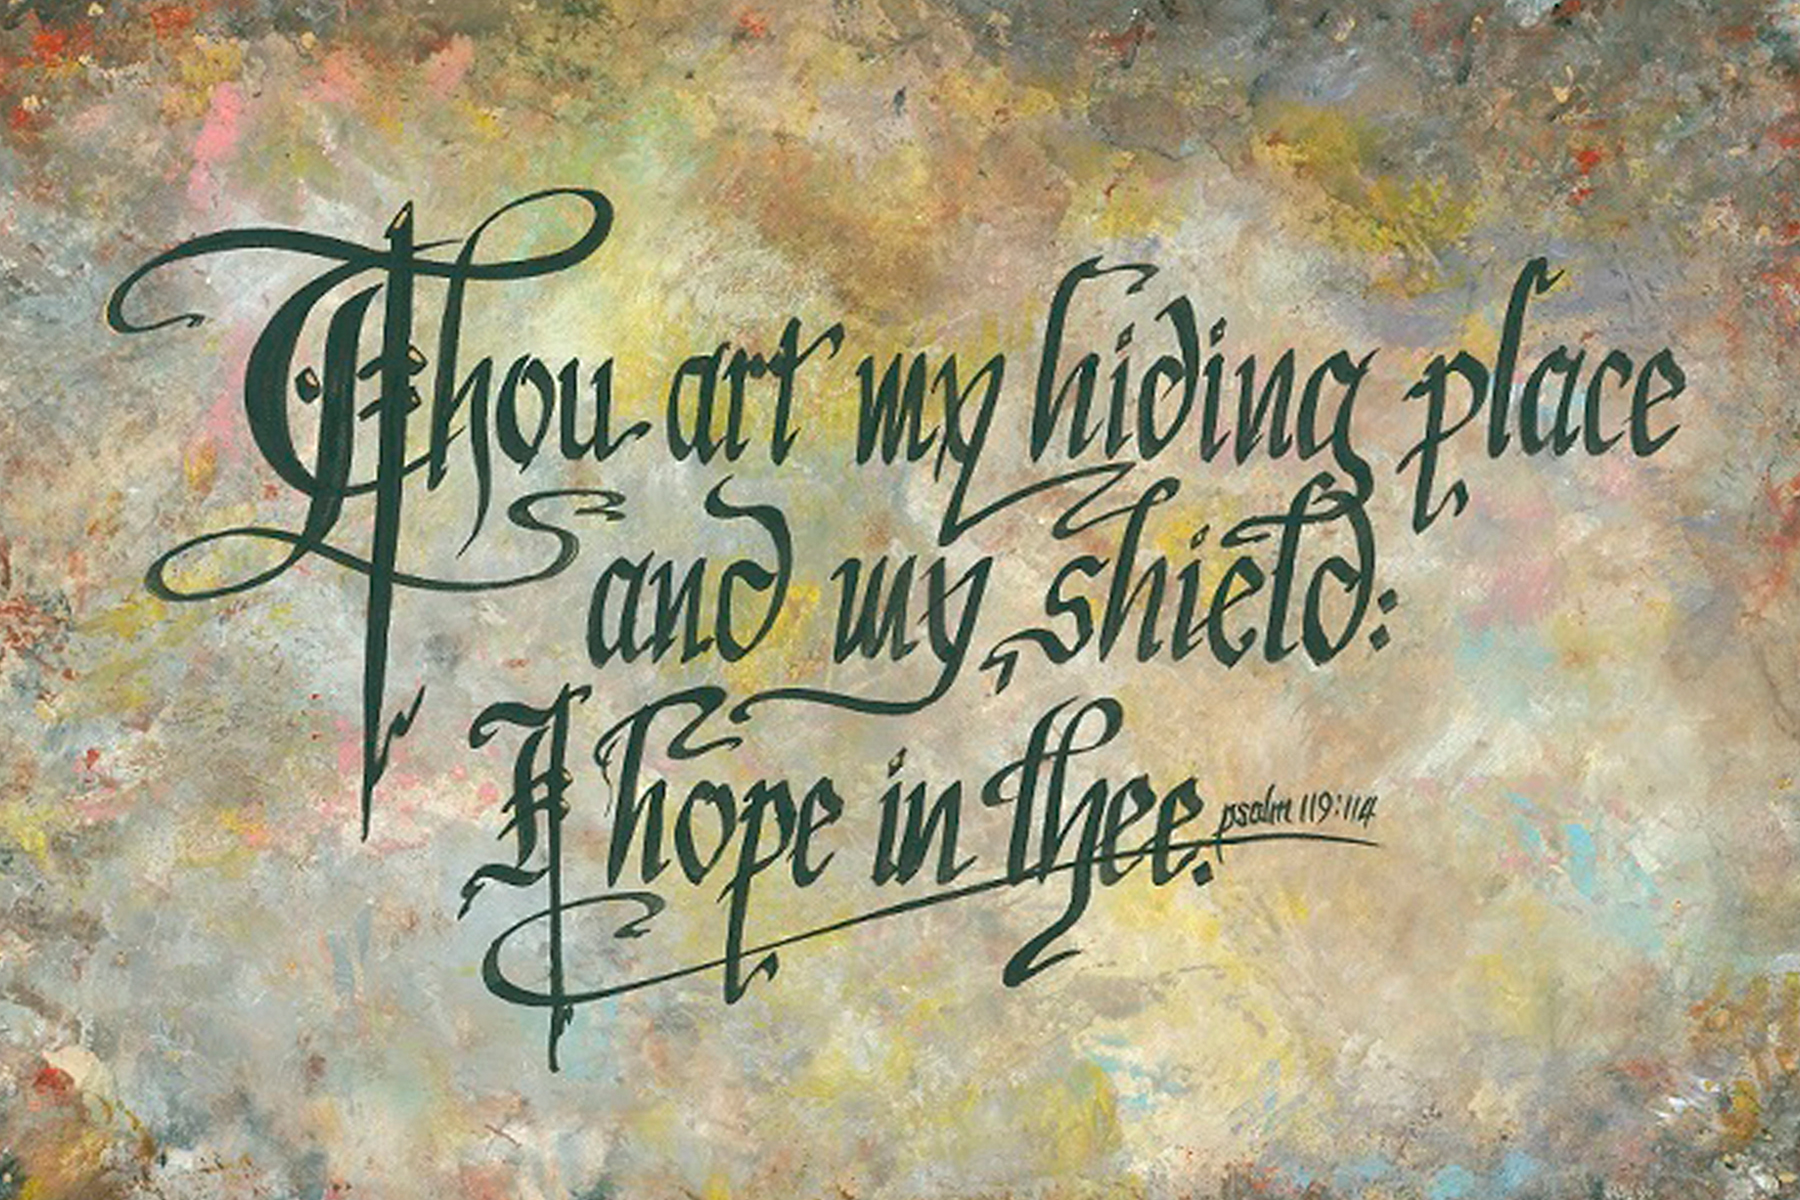 Thou art my hiding place
and my shield:
I hope in thee.
psalm 119:114